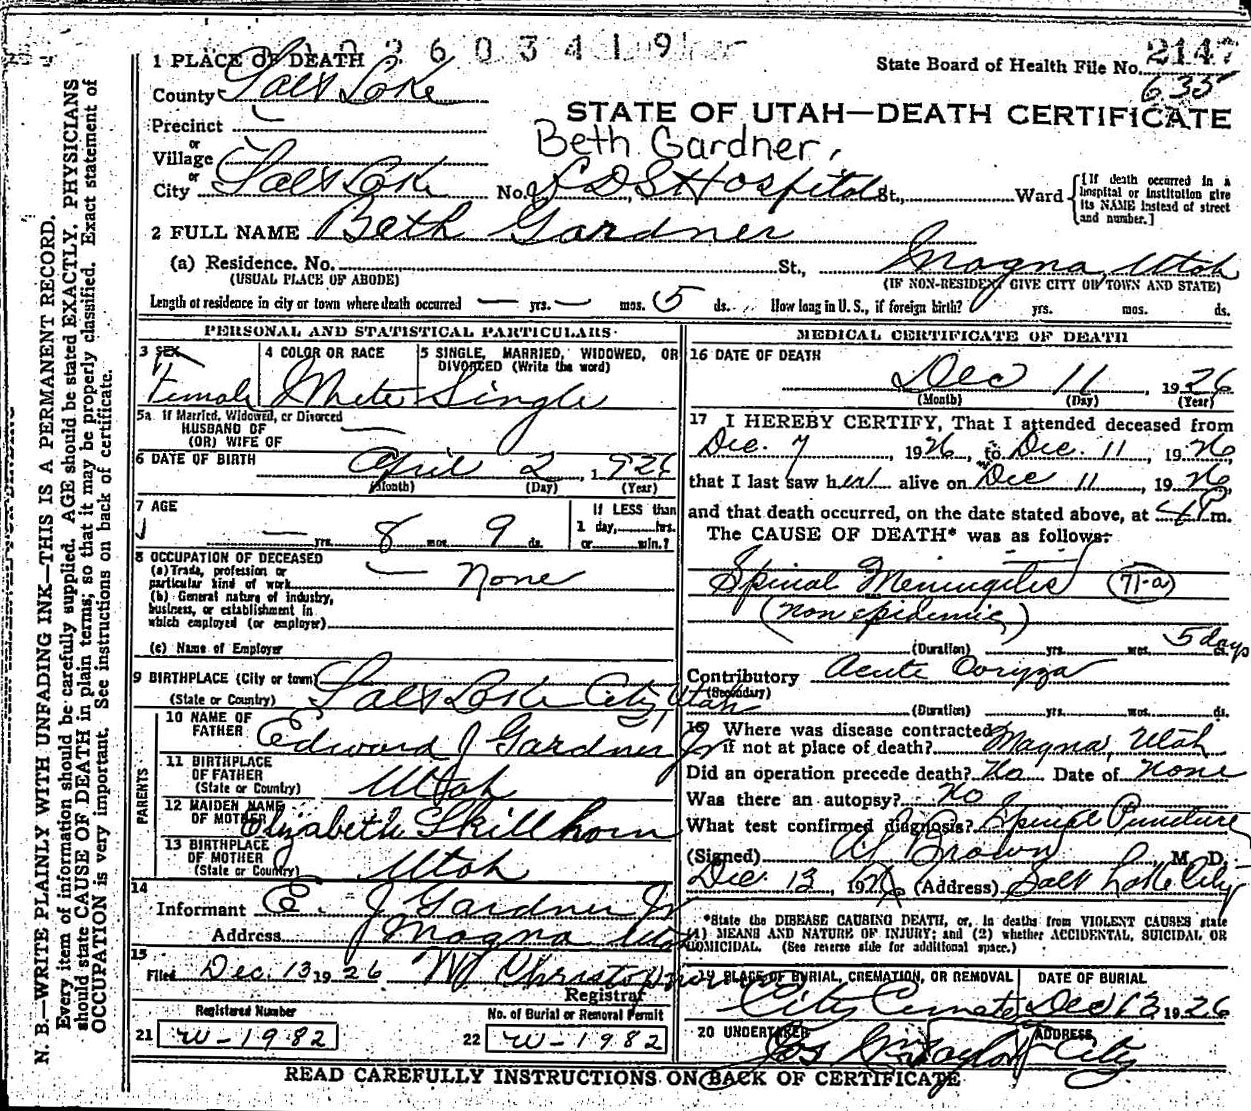 2603419
1 PLACE OF DEATH
State Board of Health File No. 2147
635
County Salt Lake
STATE OF UTAH—DEATH CERTIFICATE
Precinct
Beth Gardner
or
Village
or
City Salt Lake No. L D S Hospital St., Ward
{[If death occurred in a hospital or institution give its NAME instead of street and number.]
2 FULL NAME Beth Gardner
(a) Residence. No. St., Magna, Utah
(USUAL PLACE OF ABODE) (IF NON-RESIDENT GIVE CITY OR TOWN AND STATE)
Length of residence in city or town where death occurred — yrs. — mos. 5 ds. How long in U. S., if foreign birth? yrs. mos. ds.
PERSONAL AND STATISTICAL PARTICULARS
3 SEX
Female
4 COLOR OR RACE
White
5 SINGLE, MARRIED, WIDOWED, OR DIVORCED (Write the word)
Single
5a If Married, Widowed, or Divorced
HUSBAND OF
(OR) WIFE OF —
6 DATE OF BIRTH April 2, 1926
(Month) (Day) (Year)
7 AGE
— yrs. 8 mos. 9 ds.
If LESS than
1 day, hrs.
or min.?
8 OCCUPATION OF DECEASED
(a) Trade, profession or
particular kind of work — None
(b) General nature of industry,
business, or establishment in
which employed (or employer)
(c) Name of Employer
9 BIRTHPLACE (City or town)
(State or Country) Salt Lake City, Utah
PARENTS
10 NAME OF
FATHER Edward J Gardner Jr
11 BIRTHPLACE
OF FATHER
(State or Country) Utah
12 MAIDEN NAME
OF MOTHER Elizabeth Skillhorn
13 BIRTHPLACE
OF MOTHER
(State or Country) Utah
14
Informant E. J Gardner Jr
Address Magna Utah
15
Filed Dec. 13 1926
Registrar
Registered Number
21 W-1982
No. of Burial or Removal Permit
22 W-1982
MEDICAL CERTIFICATE OF DEATH
16 DATE OF DEATH
Dec 11 1926
(Month) (Day) (Year)
17 I HEREBY CERTIFY, That I attended deceased from
Dec. 7, 1926, to Dec. 11, 1926,
that I last saw her alive on Dec 11, 1926,
and that death occurred, on the date stated above, at 4 P m.
The CAUSE OF DEATH* was as follows:
Spinal Meningitis 71-a
(non epidemic)
5 days
(Duration) yrs. mos. ds.
Contributory Acute Coryza
(Secondary)
(Duration) yrs. mos. ds.
18 Where was disease contracted
if not at place of death? Magna, Utah
Did an operation precede death? No Date of None
Was there an autopsy? No
What test confirmed diagnosis? Spinal Puncture
(Signed) Brown M. D.
Dec. 13, 1926 (Address) Salt Lake City
*State the DISEASE CAUSING DEATH, or, in deaths from VIOLENT CAUSES state
(1) MEANS AND NATURE OF INJURY; and (2) whether ACCIDENTAL, SUICIDAL, OR
HOMICIDAL. (See reverse side for additional space.)
19 PLACE OF BURIAL, CREMATION, OR REMOVAL
City
DATE OF BURIAL
Dec 13 1926
20 UNDERTAKER
Jos Wm Taylor
ADDRESS
City
READ CAREFULLY INSTRUCTIONS ON BACK OF CERTIFICATE
N. B.—WRITE PLAINLY WITH UNFADING INK—THIS IS A PERMANENT RECORD.
Every item of information should be carefully supplied. AGE should be stated EXACTLY. PHYSICIANS
should state CAUSE OF DEATH in plain terms, so that it may be properly classified. Exact statement of
OCCUPATION is very important. See instructions on back of certificate.